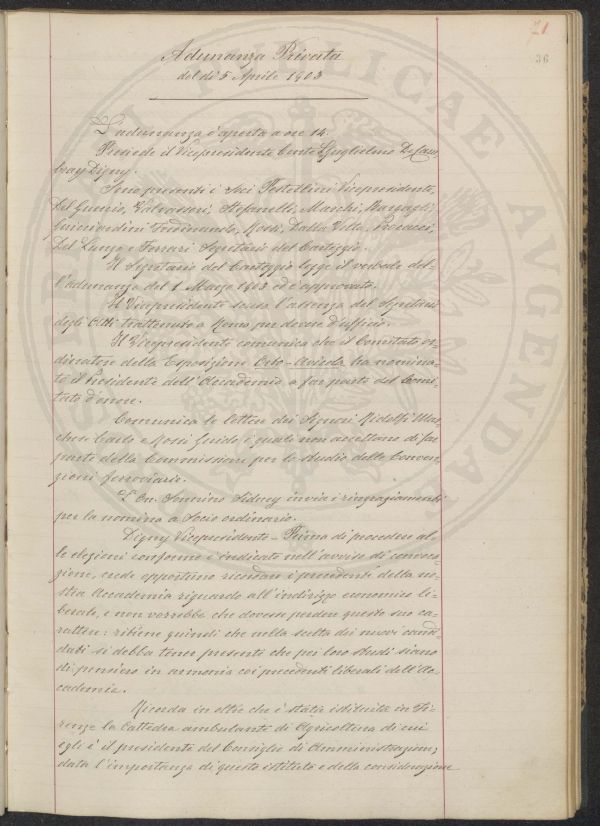 71
36
Adunanza Privata
del dì 5 Aprile 1903
L'adunanza è aperta a ore 14.
Presiede il Vicepresidente Conte Guglielmo De Cam-
bray Digny.
Sono presenti i Soci Pestellini Vicepresidente,
Del Guercio, Valvassori, Stefanelli, Marchi, Bargagli,
Guicciardini Ferdinando, Rossi, Dalla Volta, Procacci,
Del Lungo e Ferrari Segretario del Carteggio.
Il Segretario del Carteggio legge il verbale del-
l'adunanza del 1 Marzo 1903 ed è approvato.
Il Vicepresidente scusa l'assenza del Segretario
degli Atti trattenuto a Roma per dovere d'ufficio.
Il Vicepresidente comunica che il Comitato or-
dinatore della Esposizione Orto-Avicola ha nomina-
to il Presidente dell'Accademia a far parte del Comi-
tato d'onore.
Comunica le lettere dei Signori Ridolfi Mar-
chese Carlo e Rossi Guido i quali non accettano di far
parte della Commissione per lo studio delle Conven-
zioni ferroviarie.
L'On. Sonnino Sidney invia i ringraziamenti
per la nomina a Socio ordinario.
Digny Vicepresidente - Prima di procedere al-
le elezioni conforme è indicato nell'avviso di convoca-
zione, crede opportuno ricordare i precedenti della no-
stra Accademia riguardo all'indirizzo economico li-
berale, e non vorrebbe che dovesse perdere questo suo ca-
rattere: ritiene quindi che nella scelta dei nuovi candi-
dati si debba tener presente che per loro studi siano
di pensiero in armonia coi precedenti liberali dell'Ac-
cademia.
Ricorda in oltre che è stata istituita in Fi-
renze la Cattedra ambulante di Agricoltura di cui
egli è il presidente del Consiglio di Amministrazione;
data l'importanza di questo istituto e della considerazione
PUBLICAE
AUGENDAE